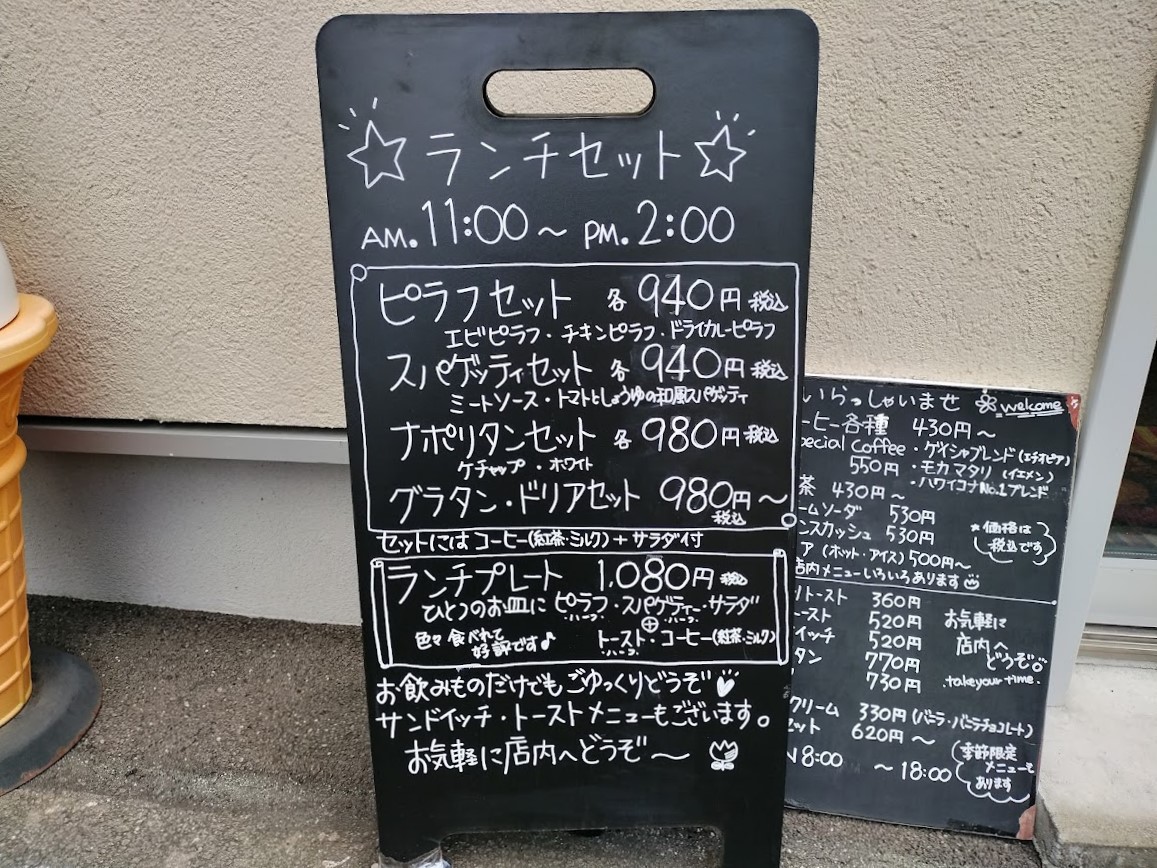 ランチセット
AM.11:00～PM.2:00
ピラフセット 各940円税込
エビピラフ・チキンピラフ・ドライカレーピラフ
スパゲッティセット 各940円税込
ミートソース・トマトとしょうゆの和風スパゲッティ
ナポリタンセット 各980円税込
ケチャップ・ホワイト
グラタン・ドリアセット 980円～
税込
セットにはコーヒー(紅茶・ミルク)+サラダ付
ランチプレート 1,080円税込
ひとつのお皿に ピラフ・スパゲティー・サラダ
ハーフ ハーフ
+
色々食べれて
好評です♪
トースト・コーヒー(紅茶・ミルク)
ハーフ
お飲みものだけでもごゆっくりどうぞ
サンドイッチ・トーストメニューもございます。
お気軽に店内へどうぞ～
いらっしゃいませ welcome
ーヒー各種 430円～
pecial Coffee・ゲイシャブレンド(エチオピア)
550円・モカマタリ(イエメン)
・ハワイコナNo.1ブレンド
茶 430円～
ームソーダ 530円
ンスカッシュ 530円
*価格は
税込です
ア(ホット・アイス)500円～
店内メニューいろいろあります
トースト 360円
ースト 520円
イッチ 520円
タン 770円
730円
お気軽に
店内へ
どうぞ
take your time.
クリーム 330円(バニラ・バニラチョコレート)
セット 620円～
8:00 ～18:00
季節限定
メニューも
あります